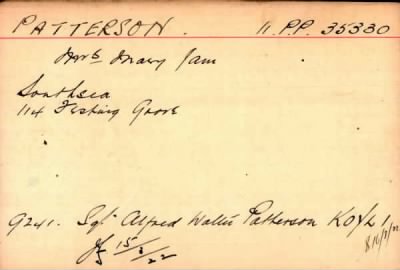 PATTERSON. 11.P.P. 35330
Mrs Mary Jam
Southsea
114 Festing Grove
9241. Sgt Alfred Walter Patterson KOYLI
15/2/22